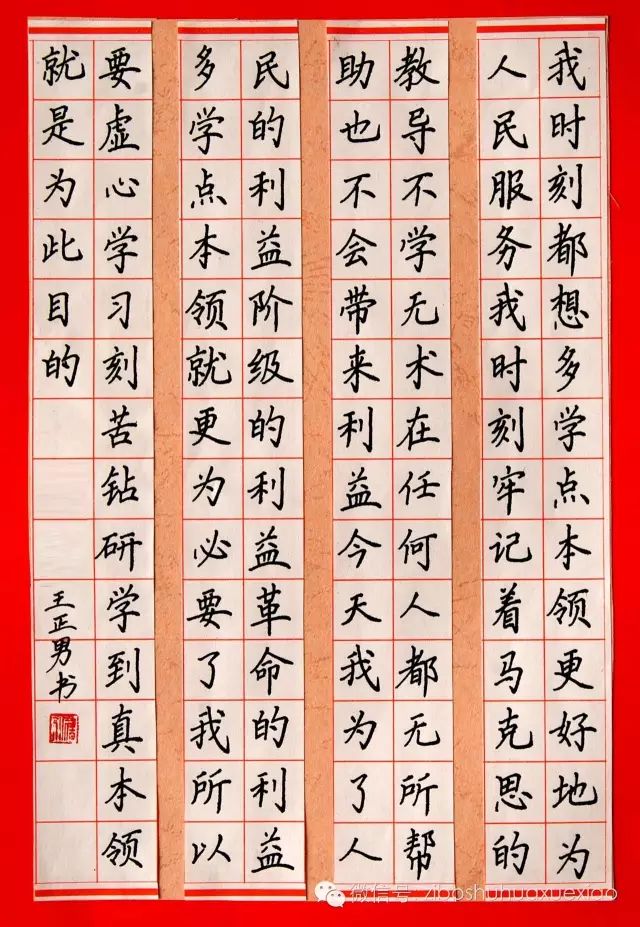 我时刻都想多学点本领更好地为
人民服务我时刻牢记着马克思的
教导不学无术在任何人都无所帮
助也不会带来利益今天我为了人
民的利益阶级的利益革命的利益
多学点本领就更为必要了我所以
要虚心学习刻苦钻研学到真本领
就是为此目的
王正男书
微信号: ziboshuhuaxuexiao